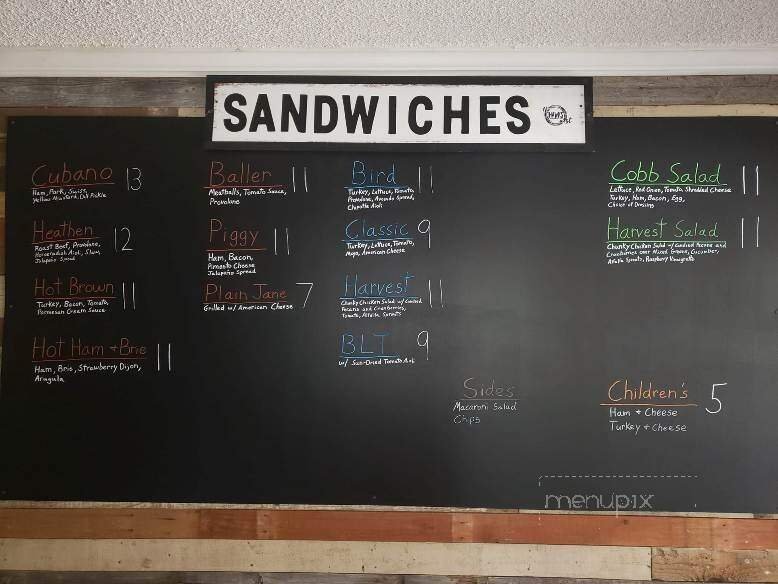 SANDWICHES
Cubano 13
Ham, Pork, Swiss,
Yellow Mustard, Dill Pickle
Heathen 12
Roast Beef, Provolone,
Horseradish Aioli, Slaw,
Jalapeño Spread
Hot Brown 11
Turkey, Bacon, Tomato,
Parmesan Cream Sauce
Hot Ham + Brie 11
Ham, Brie, Strawberry Dijon,
Arugula
Baller 11
Meatballs, Tomato Sauce,
Provolone
Piggy 11
Ham, Bacon,
Pimento Cheese
Jalapeño Spread
Plain Jane 7
Grilled w/ American Cheese
Bird 11
Turkey, Lettuce, Tomato,
Provolone, Avocado Spread,
Chipotle Aioli
Classic 9
Turkey, Lettuce, Tomato,
Mayo, American Cheese
Harvest 11
Chunky Chicken Salad w/ Candied
Pecans and Cranberries,
Tomato, Alfalfa Sprouts
BLT 9
w/ Sun-Dried Tomato Aioli
Sides
Macaroni Salad
Chips
Cobb Salad 11
Lettuce, Red Onion, Tomato, Shredded Cheese
Turkey, Ham, Bacon, Egg,
Choice of Dressing
Harvest Salad 11
Chunky Chicken Salad w/ Candied Pecans and
Cranberries over Mixed Greens, Cucumber,
Alfalfa Sprouts, Raspberry Vinaigrette
Children's 5
Ham + Cheese
Turkey + Cheese
menupix